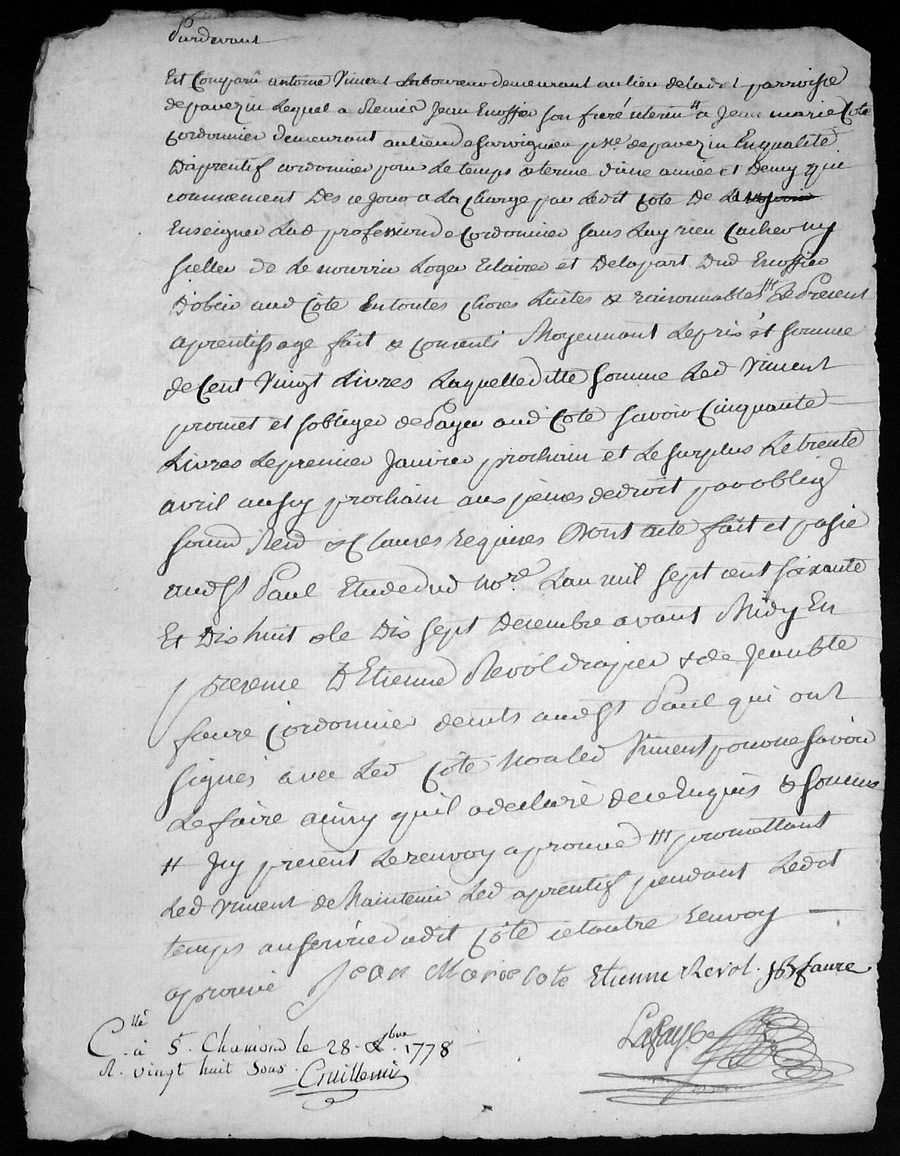 Pardevant
Est Comparu antoine Vincent Laboureur demeurant au lieu de parroisse
de pavezin Lequel a Remis Jean Enoffier son frere uterin # a Jean marie Cote
Cordonnier demeurant au lieu de psse de pavezin En qualité
D'aprentif cordonnier pour Le temps & terme d'une année et Demy qui
commencent Des ce jour a La charge par Ledit Cote De Le
Enseigner Lad profession de Cordonnier sans Luy rien Cacher ny
seller de Le nourrir Loger Eclairer et De la part Dud Enoffier
D'obeir aud Côte En toutes choses Licites & raisonnables # Le Present
aprentissage fait & consenti Moyennant Le pris et somme
de Cent Vingt Livres Laquelle ditte somme Led Vincent
promet et s'obliger de Payer aud Côte savoir Cinquante
Livres Le premier Janvier prochain et Le surplus Le trente
avril aussy prochain aux peines de droit par oblig
soum Ren & Clauses Requises Dont acte fait et passé
aud St Paul Etude dud nore. L'an mil sept cent soixante
Et Dix huit & le Dix sept Decembre avant Midy En
presence D'Etienne Revol drapier & de Jean bte
faure Cordonnier de mts aud St Paul qui ont
signés avec Led Côte non led Vincent pour ne savoir
Le faire ainsy qu'il a declaré de ce Enquis & sommé
# Icy present Le renvoy aprouvé # promettant
Led Vincent de Maintenir Led aprentif pendant Ledt
temps au service dudit Côte cet autre Renvoy
aprouvé Jean Marie Cote Etienne Revol. JB faure
Lafay
C.llé à St. Chamond le 28. Xbre. 1778
R. vingt huit sous.